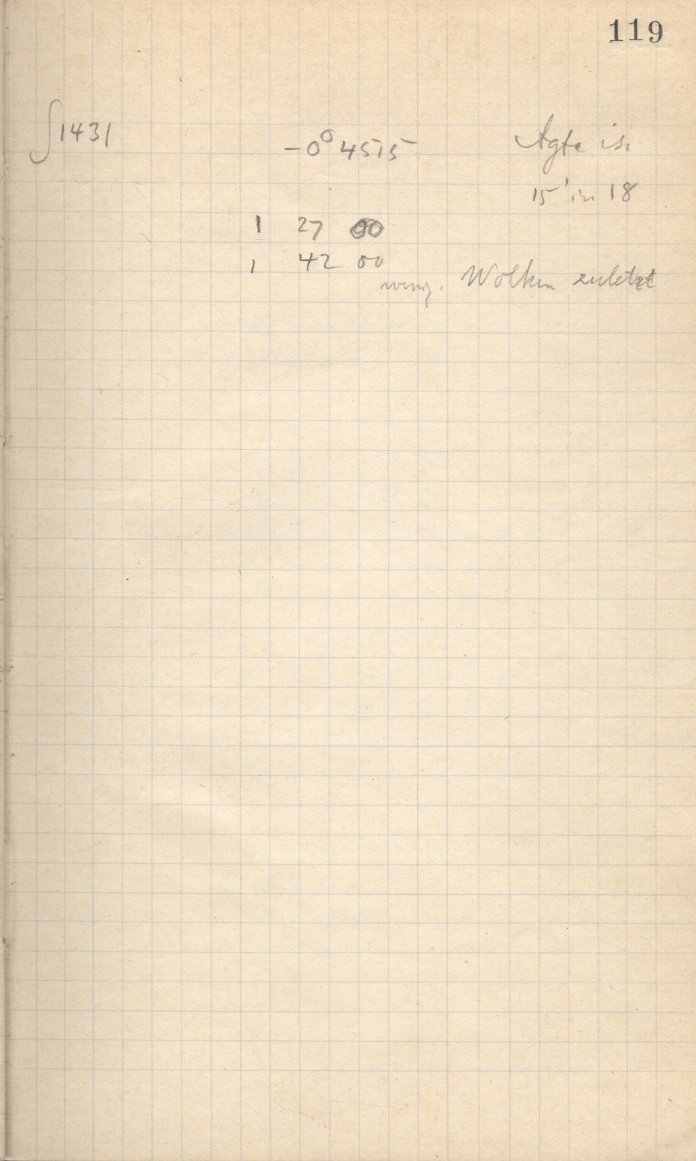 119
∫1431 -0° 4515 Agfa is.
15' in 18
1 27 00
1 42 00
wenig. Wolken zuletzt